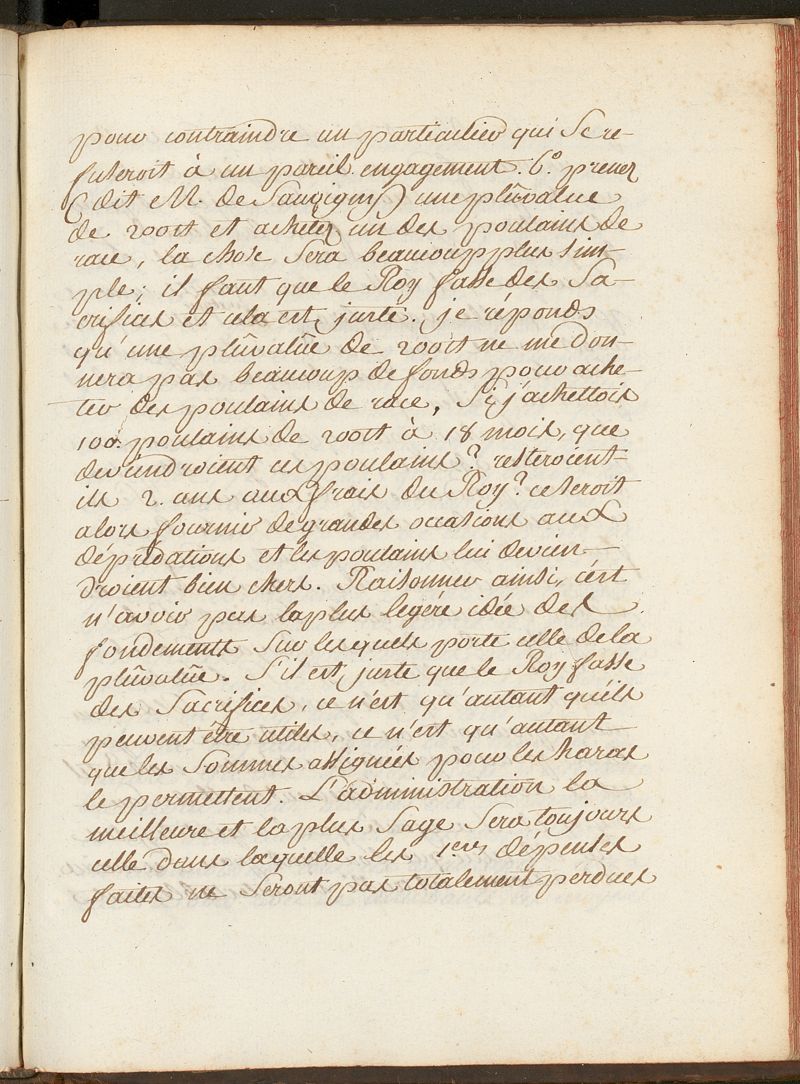 pour contraindre un particulier qui Se re-
fuseroit à un pareil engagement. 6.º prenez
(dit M. de Sauvigny) une plûvalue
de 200tt et achetez un des poulains de
race, la chose Sera beaucoup plus sim-
ple; il faut que le Roy fasse des Sa-
crifices et cela est juste. je réponds
qu'une plûvalûe de 200tt ne me don-
nera pas beaucoup de fonds pour ache-
ter des poulains de race, Si j'achettois
100. poulains de 200tt à 18 mois, que
deviendroient ces poulains? resteroient-
ils 2. ans aux frais du Roy? ce seroit
alors fournir de grandes occasions aux
déprédations et les poulains lui devien-
droient bien chers. Raisonner ainsi, c'est
n'avoir pas la plus légére idée des
fondements Sur lesquels porte celle de la
plûvalûe. S'il est juste que le Roy fasse
des Sacrifices, ce n'est qu'autant qu'ils
peuvent être utiles, ce n'est qu'autant
que les Sommes assignées pour les haras
le permettent. L'administration la
meilleure et la plus Sage Sera toujours
celle dans laquelle les 1.eres dépenses
faites ne Seront pas totalement perdues